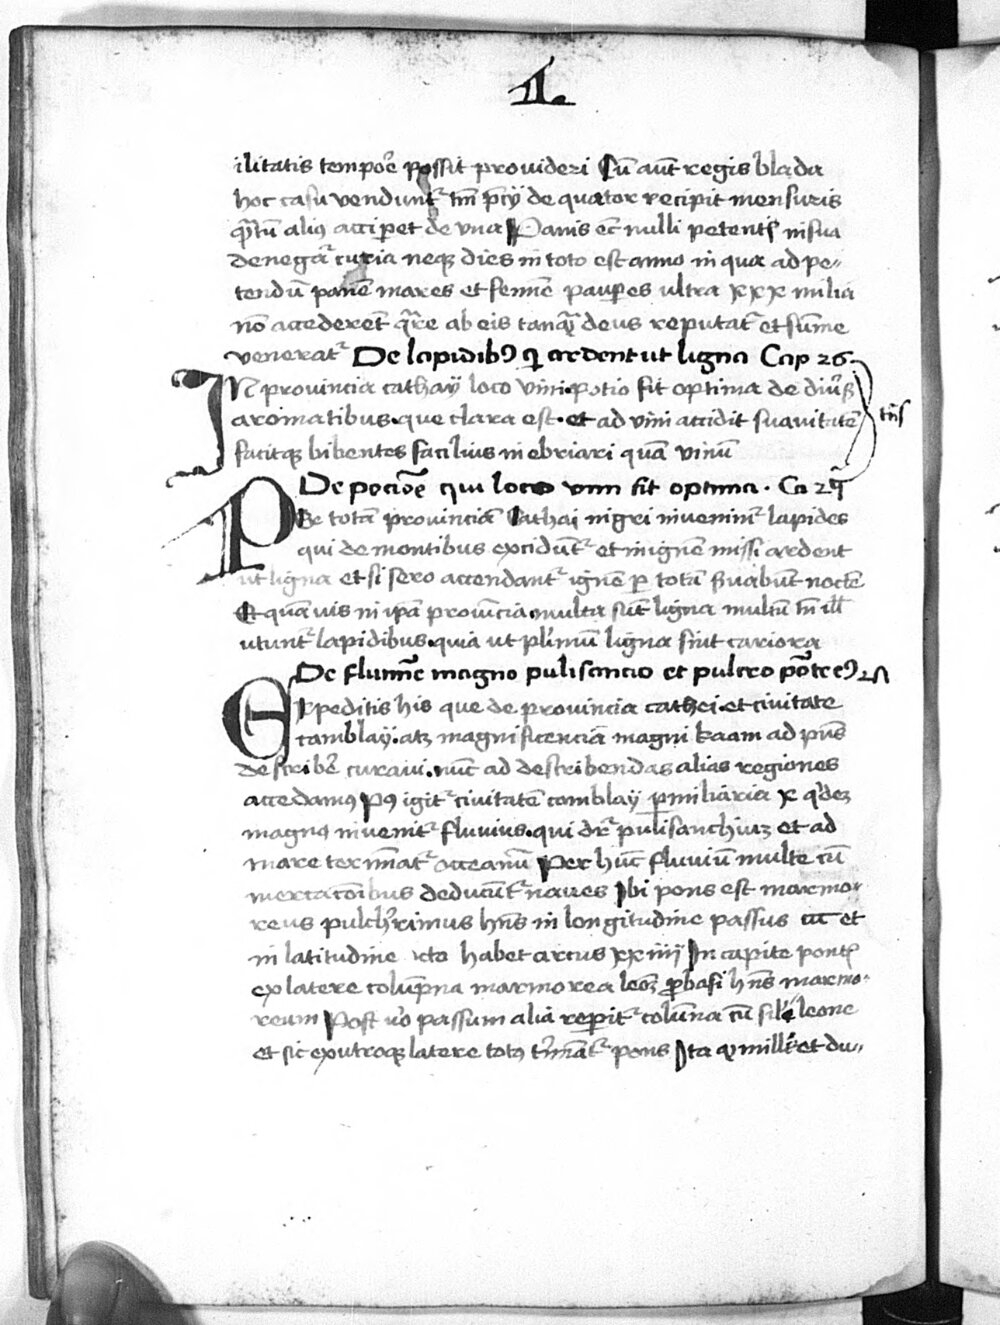 II.
ilitatis tempoē possit provideri Cū aūt regis blada
hoc casu vendunt᷑ tm̄ p̄cij de quator recipit mensuris
q̄ntū aliꝰ accip̄et de vna Panis ec̄ nulli petenti in sua
denegat᷑ curia neqꝫ dies in toto est anno in qua ad pe〃
tendū panē mares et femīe paup̄es ultra xxx milia
nō accederēt q̄re ab eis tanqȝ deus reputat᷑ et sūme
venerat᷑ De lapidibꝰ q̄ ardent ut ligna Cap 26
IN provincia cathaÿ loco vini potio fit optima de diūs̄
aromatibus que clara est et ad vini accidit suavitatē
facitqꝫ bibentes facilius inebriari quā vinū
De pocōe qui loco vini fit optima · Ca 27
PEr totā provinciā Cathai nigri inveniūt᷑ lapides
qui de montibus exciduntur᷑ et in ignē missi ardent
ut ligna et si sero accendant᷑ ignē p̱ totā s̄vabūt noctē
Et quāvis in ip̄a provīcia multa sūt ligna multū tn̄ ill̄
utunt᷑ lapidibus quia ut pl̄imū ligna sūt cariora
De flumīe magno pulisancio et pulcro pōte eꝰ 28
EXpeditis his que de provincia cathei et civitate
camblaÿ atqꝫ magnificenciā magni kaam ad pn̄s
describē curavi nūc ad describendas alias regiones
accedamꝰ Pꝰ igit᷑ civitatē camblaÿ p̱ miliaria x q̄deꝫ
magnꝰ invenit᷑ fluvius qui dr̄ pulisanchiuꝫ et ad
mare termīat᷑ occeanū Per hūc fluviū multe cū
mercacōibus deducūt᷑ naves Ibi pons est marmo
reus pulcherrimus hn̄s in longitudine passus ccc et
in latitudine octo habet arcus xxiiij In capite pontis
ex latere colūpna marmorea leoꝫ p̱ basi hn̄s marmo
reum Post v̄o passum alia rep̱it᷑ colūna cū sil̄i leone
et sic ex utroqꝫ latere totꝰ t̄mīat᷑ pons Ita q̄ mille et du〃